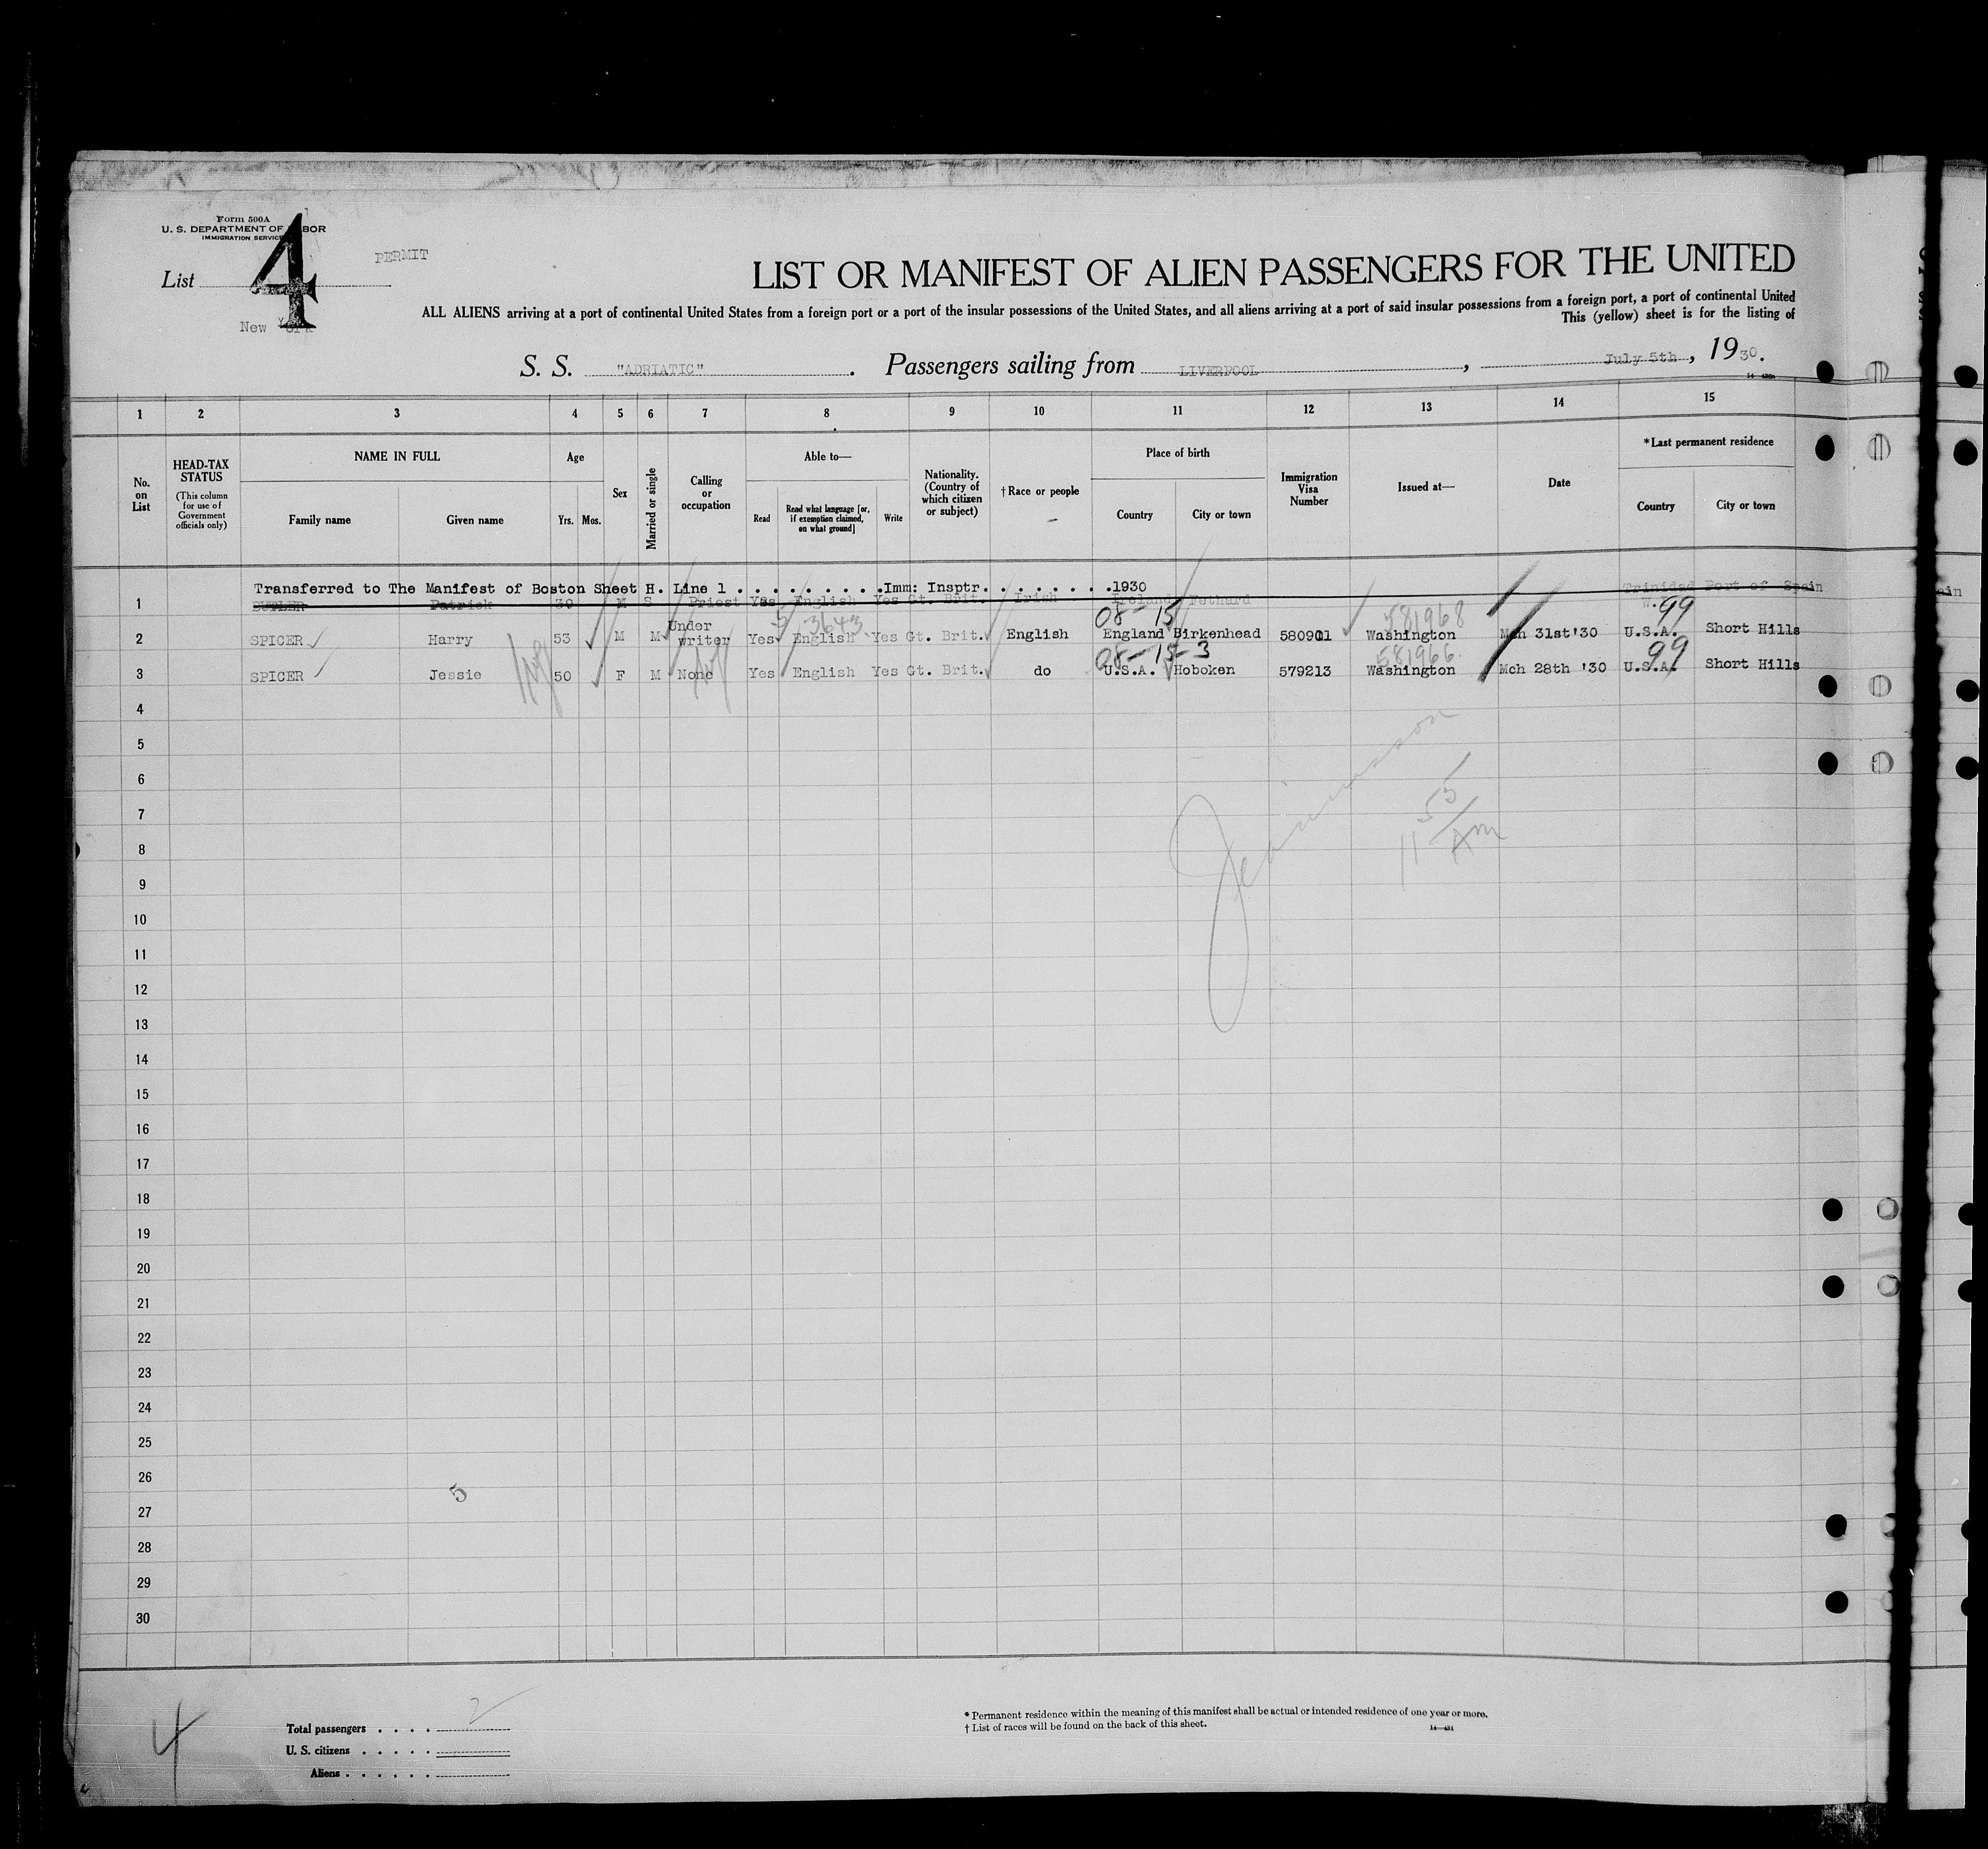 Form 500A
U. S. DEPARTMENT OF LABOR
IMMIGRATION SERVICE
List 4
PERMIT
New York
LIST OR MANIFEST OF ALIEN PASSENGERS FOR THE UNITED
ALL ALIENS arriving at a port of continental United States from a foreign port or a port of the insular possessions of the United States, and all aliens arriving at a port of said insular possessions from a foreign port, a port of continental United
This (yellow) sheet is for the listing of
S. S. "ADRIATIC". Passengers sailing from LIVERPOOL, July 5th, 1930.
1 2 3 4 5 6 7 8 9 10 11 12 13 14 15
No. on List
HEAD-TAX STATUS
(This column for use of Government officials only)
NAME IN FULL
Family name
Given name
Age
Yrs. Mos.
Sex
Married or single
Calling or occupation
Able to—
Read
Read what language [or, if exemption claimed, on what ground]
Write
Nationality. (Country of which citizen or subject)
†Race or people
Place of birth
Country
City or town
Immigration Visa Number
Issued at—
Date
*Last permanent residence
Country
City or town
Transferred to The Manifest of Boston Sheet H. Line 1 . . . . . . . . . .Imm: Insptr. . . . . . . . .1930
1 BUTLER Patrick 30 M S Priest Yes English Yes Gt. Brit. Irish Ireland Fethard Trinidad Port of Spain
W.
3643
08 - 15
581968
99
2 SPICER Harry 53 M M Under writer Yes English Yes Gt. Brit. English England Birkenhead 580901 Washington Mch 31st'30 U.S.A. Short Hills
08-15-3
581966
99
3 SPICER Jessie 50 F M None Yes English Yes Gt. Brit. do U.S.A. Hoboken 579213 Washington Mch 28th '30 U.S.A. Short Hills
4
5
6
7
8
9
10
11
12
13
14
15
16
17
18
19
20
21
22
23
24
25
26
27
28
29
30
11 55 AM
5
4
Total passengers . . . . 2
U. S. citizens . . . . .
Aliens . . . . . .
* Permanent residence within the meaning of this manifest shall be actual or intended residence of one year or more.
† List of races will be found on the back of this sheet.